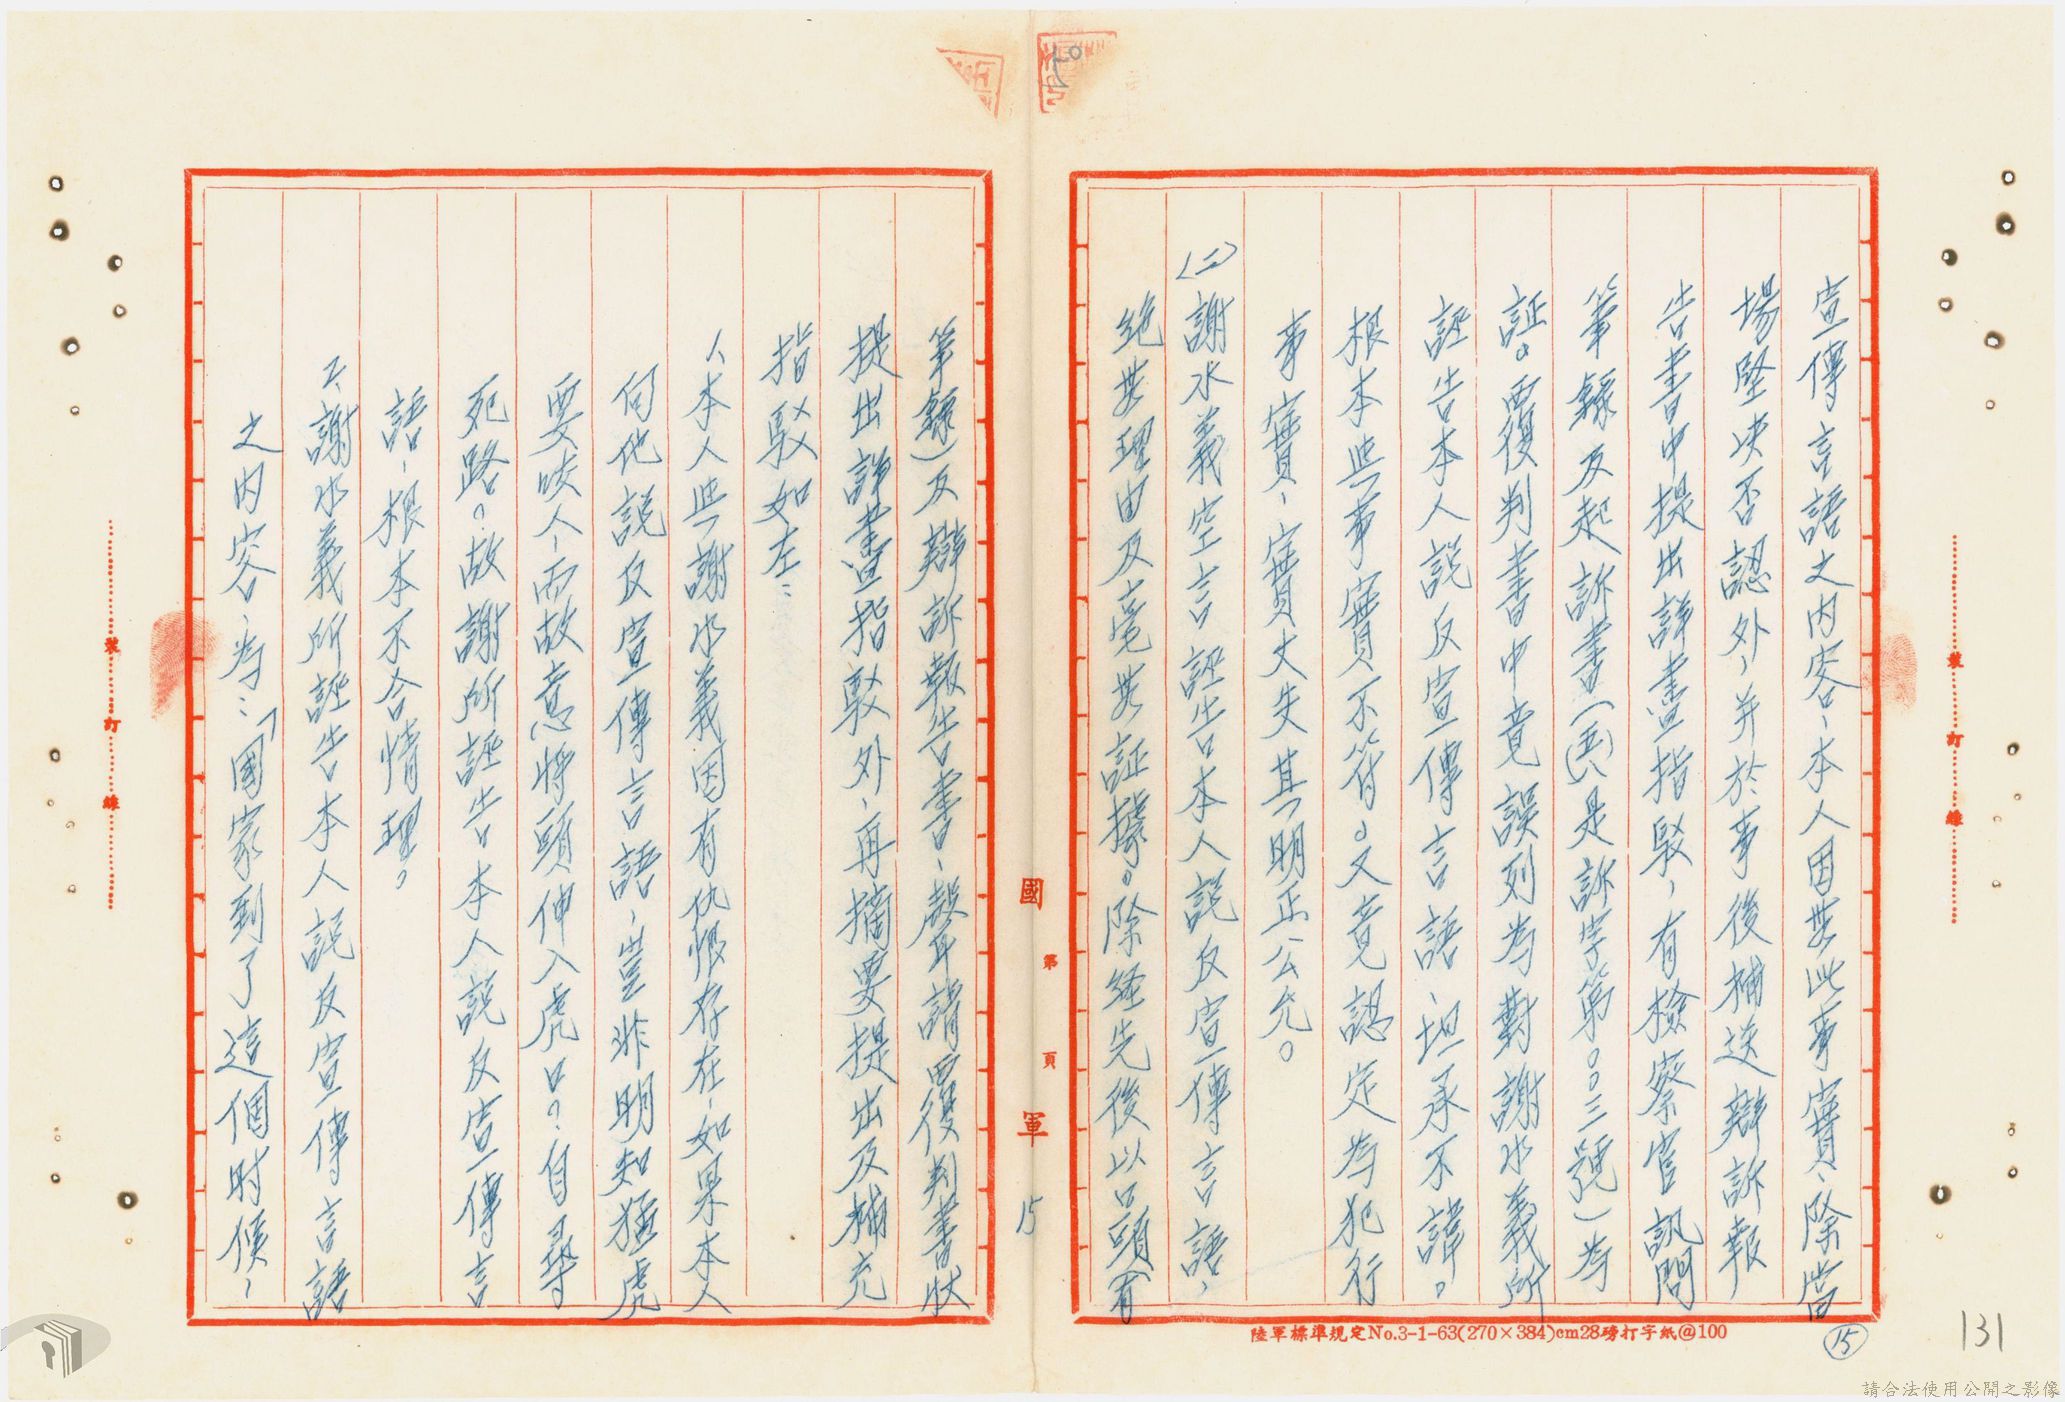 宣傳言語之内容、本人因無此事實、除當
場堅决否認外、并於事後補送辯訴報
告書中提出詳盡指駁，有檢察官訊問
筆錄及起訴書（(五八)是訴字第○○三號）為
証。而復判書中竟誤列為對謝水義所
誣告本人説反宣傳言語、坦承不諱。
根本與事實不符。又竟認定為犯行
事實、實實大失其明正公允。
(二)謝水義空言誣告本人説反宣傳言語，
絶無理由及毫無証據。除経先後以口頭(有
筆錄)及辯訴報告書、聲請覆判書狀
提出詳盡指駁外、再摘要提出及補充
指駁如左：
1、本人與謝水義因有仇恨存在、如果本人
向他説反宣傳言語、豈非明知猛虎
要咬人、而故意将頭伸入虎口？自尋
死路？故謝所誣告本人説反宣傳言
語、根本不合情理。
2、謝水義所誣告本人説反宣傳言語
之内容、為：「國家到了這個时候、
國
第
頁
軍
15
陸軍標準規定No.3-1-63(270×384)cm28磅打字紙@100
15
131
裝
訂
線
裝
訂
線
請合法使用公開之影像